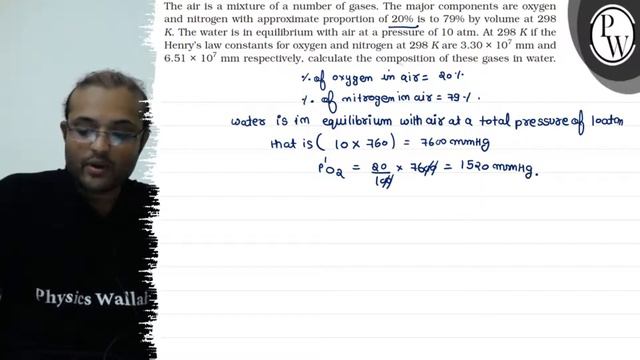 The air is a mixture of a number of gases. The major components are oxygen
and nitrogen with approximate proportion of 20% is to 79% by volume at 298
K. The water is in equilibrium with air at a pressure of 10 atm. At 298 K if the
Henry's law constants for oxygen and nitrogen at 298 K are 3.30 × 10⁷ mm and
6.51 × 10⁷ mm respectively, calculate the composition of these gases in water.
% of oxygen in air = 20%
% of nitrogen in air = 79%.
water is in equilibrium with air at a total pressure of 10 atm
that is (10 × 760) = 7600 mmHg
P'O₂ = 20/100 × 7600 = 1520 mmHg.
PW
Physics Wallah